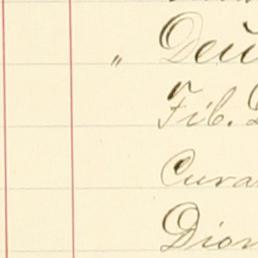 " Deu
Fib.
Cura
Dion